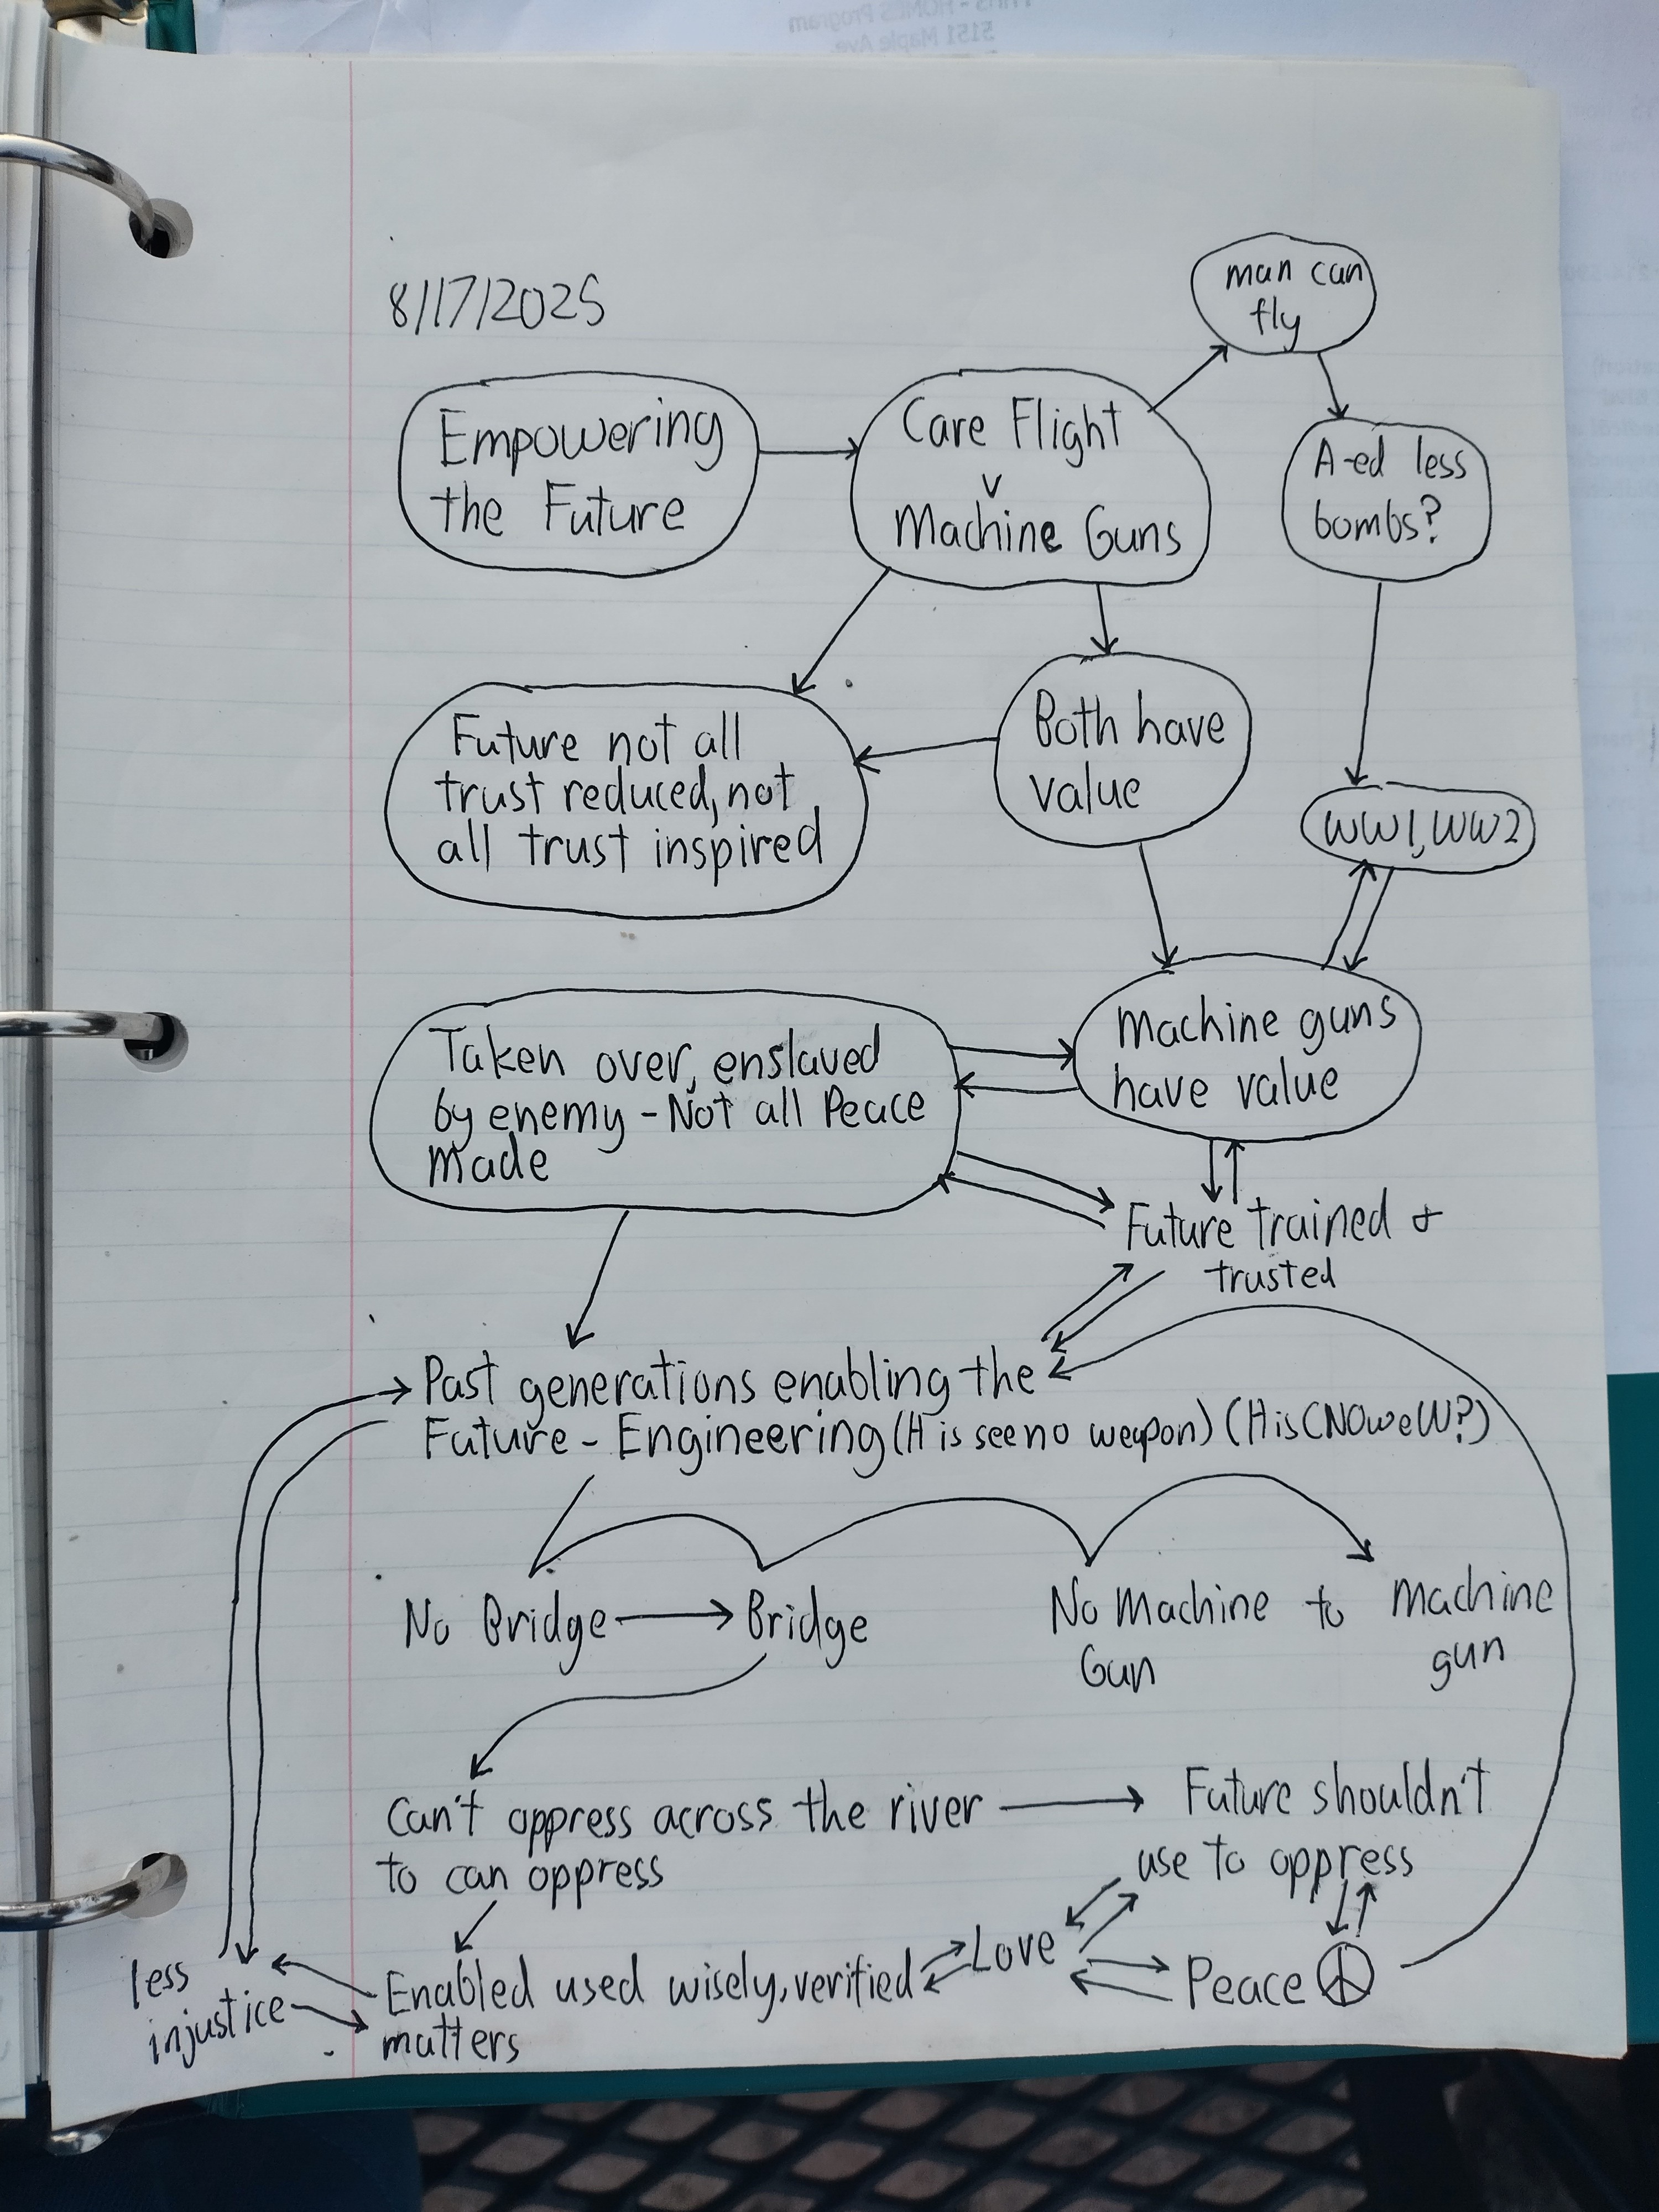 8/17/2025
man can
fly
Empowering
the Future
Care Flight
v
Machine Guns
A-ed less
bombs?
Future not all
trust reduced, not
all trust inspired
Both have
value
WW1, WW2
Taken over, enslaved
by enemy - Not all Peace
made
Machine guns
have value
Future trained &
trusted
Past generations enabling the
Future - Engineering (H is see no weapon) (H is CNOweW?)
No Bridge
Bridge
No Machine
Gun
to
Machine
gun
Can't oppress across the river
to can oppress
Future shouldn't
use to oppress
less
injustice
Enabled used wisely, verified
matters
Love
Peace
5151 Maple Ave.